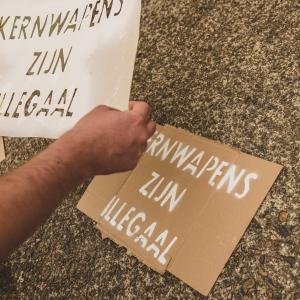 KERNWAPENS
ZIJN
ILLEGAAL
KERNWAPENS
ZIJN
ILLEGAAL